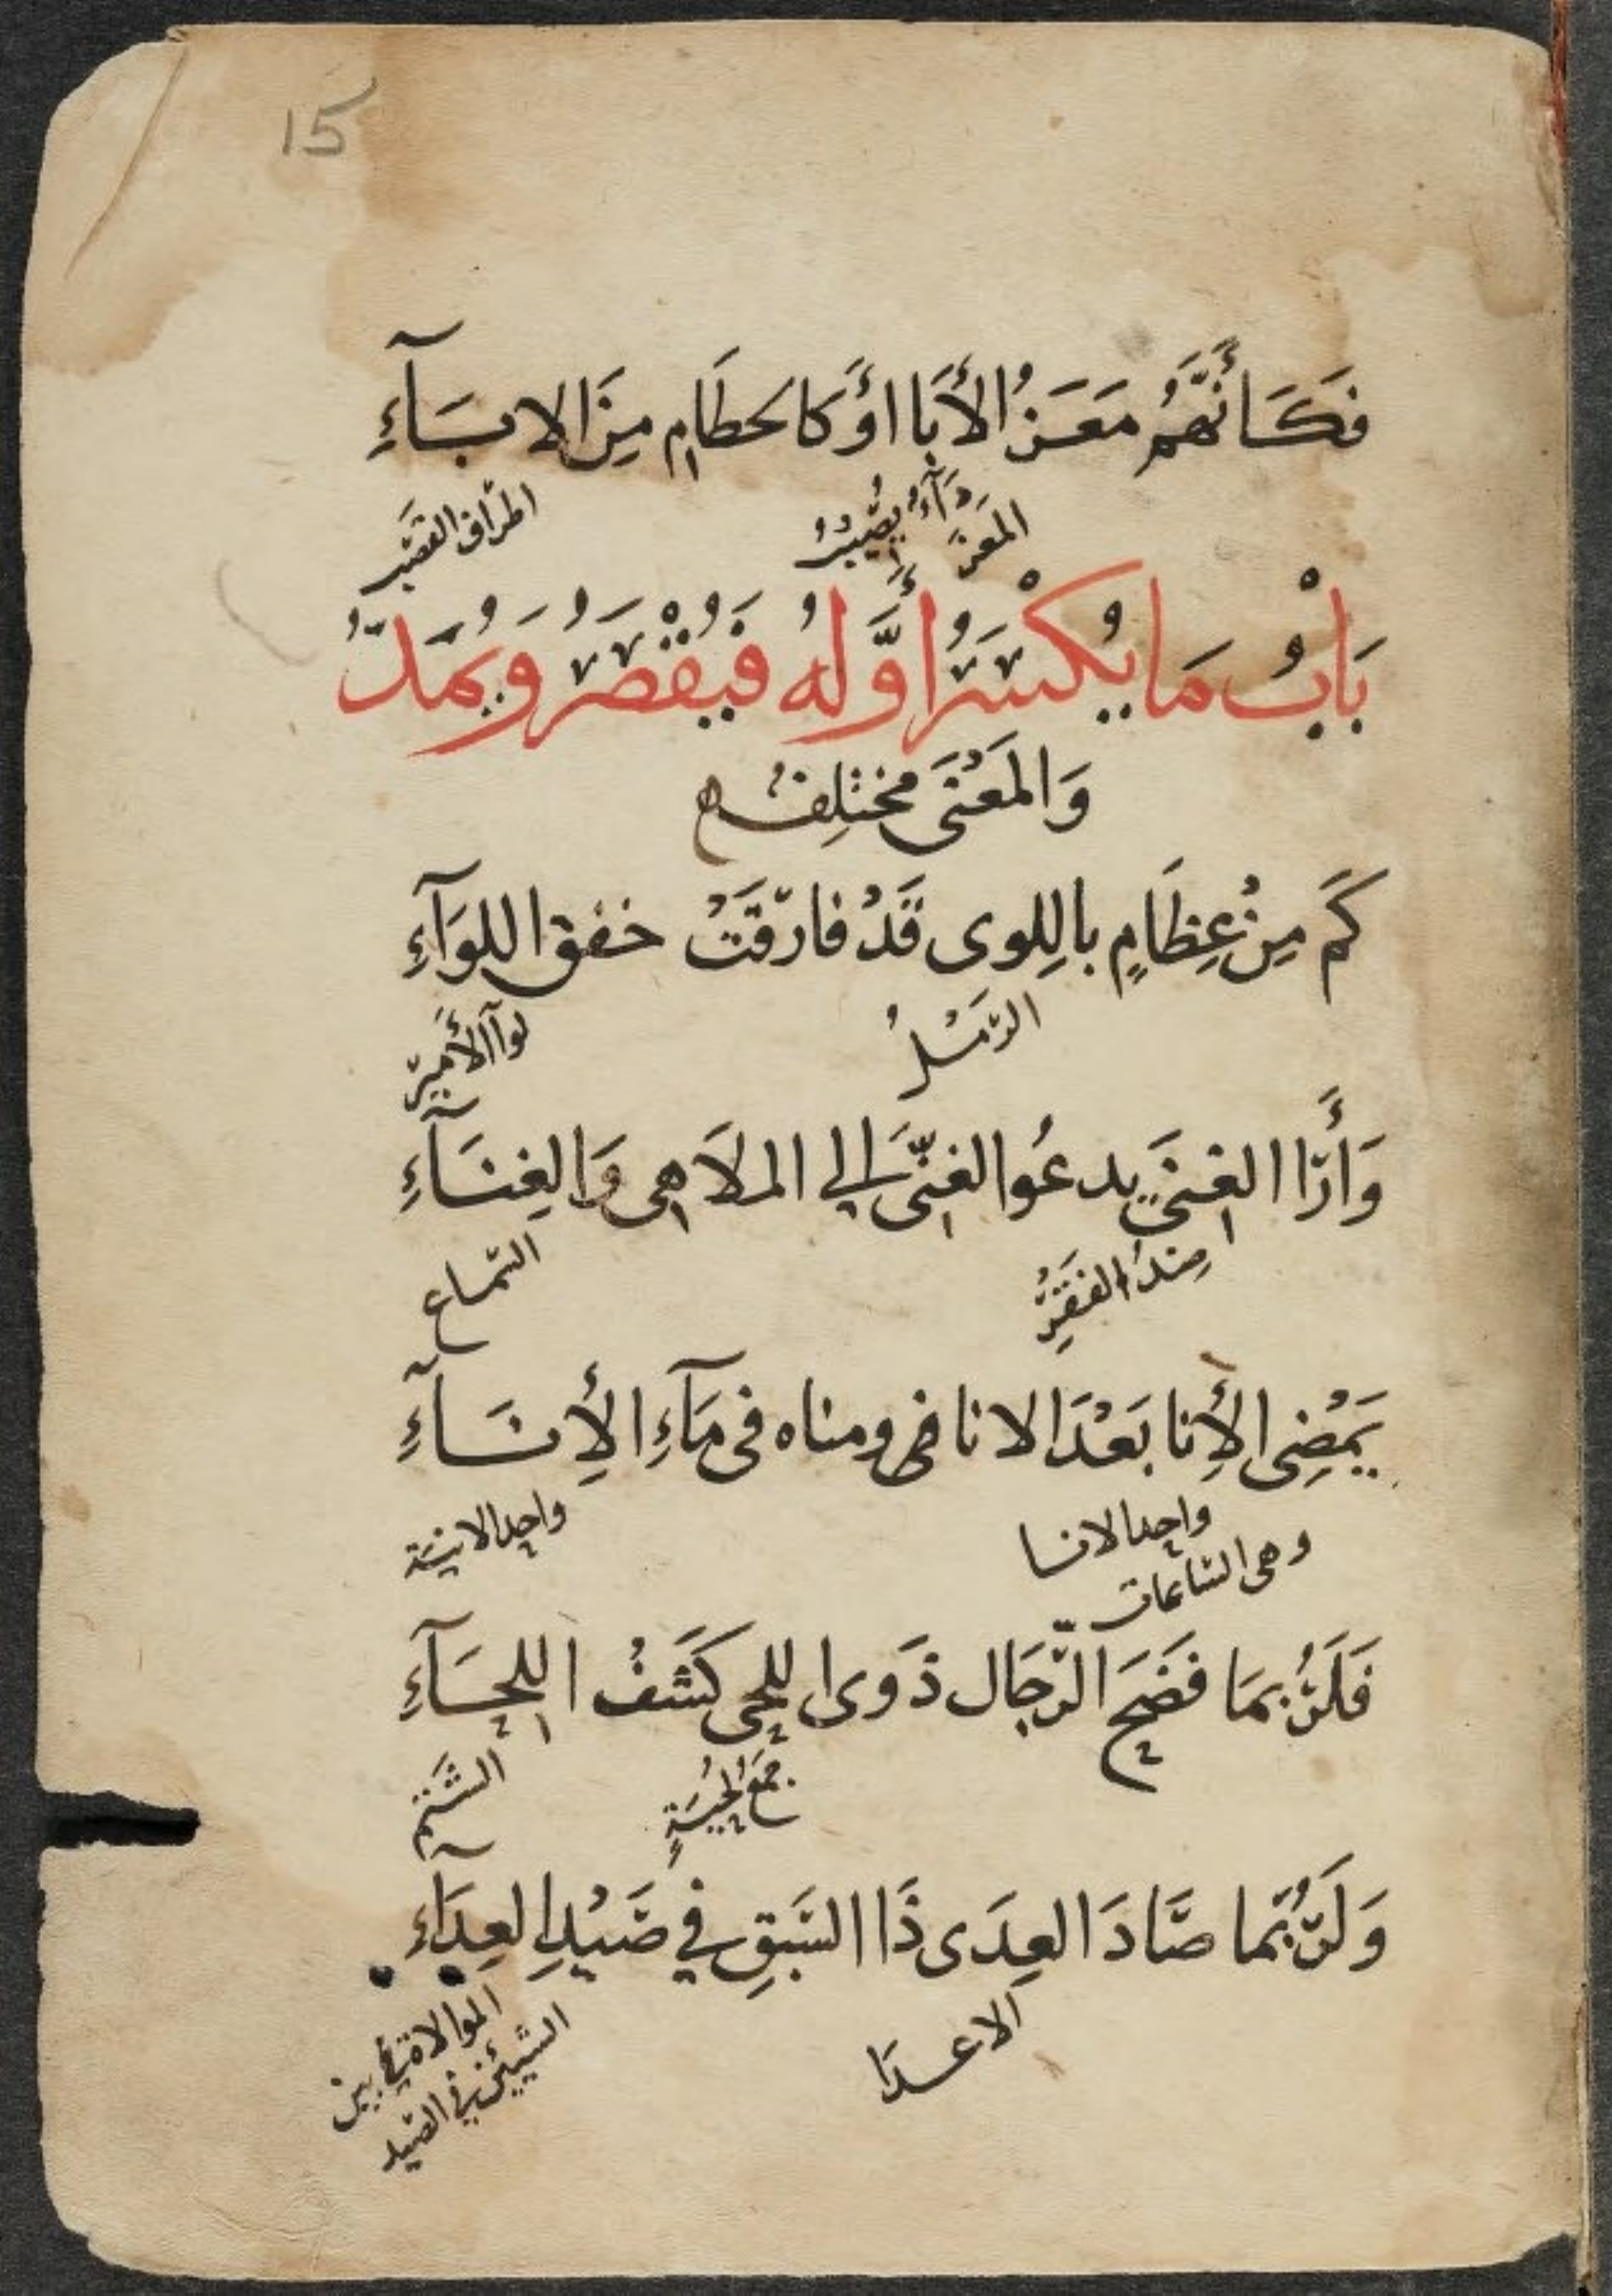 15
فَكَأَنَّهُمْ مَعَزُ الأَبَا أَوْ كالحطَامِ مِنَ الابَآءِ
المَعَز دَآءٌ يُصِيبُ
اطراف القصَب
بَابُ مَا يُكْسَرُ أَوَّلُهُ فَيُقْصَرُ وَيُمَدُّ
وَالمَعْنَى مختلِفُ
كَمْ مِنْ عِظَامٍ بِاللِوى قَدْ فارَقَتْ خفق اللوَآءِ
الرَّمْلُ
لوآ الأَمير
وَأَرَا الغِنَى يدعُوا الغَنِيَّ الي الملَاهِى وَالغِنَآءِ
ضِدُ الفَقْرِ
السماع
يَمْضِى الأِنا بَعْدَ الانا ومناه فى مَآءِ الأِنَآءِ
واحد الانا
وهى الساعات
واحد الانية
فَلَرُبمَا فَضَحَ الرِّجَال ذَوى اللحى كَشْفُ اللحَآءِ
جَمْعُ لحْيَةٍ
الشَّتم
وَلَرُبَّما صَّادَ العِدَى ذَا السَّبَقِ فِي صَيْدِ العِدَآءِ
الاعدَا
الموالاة بين
الشيئين في الصيد